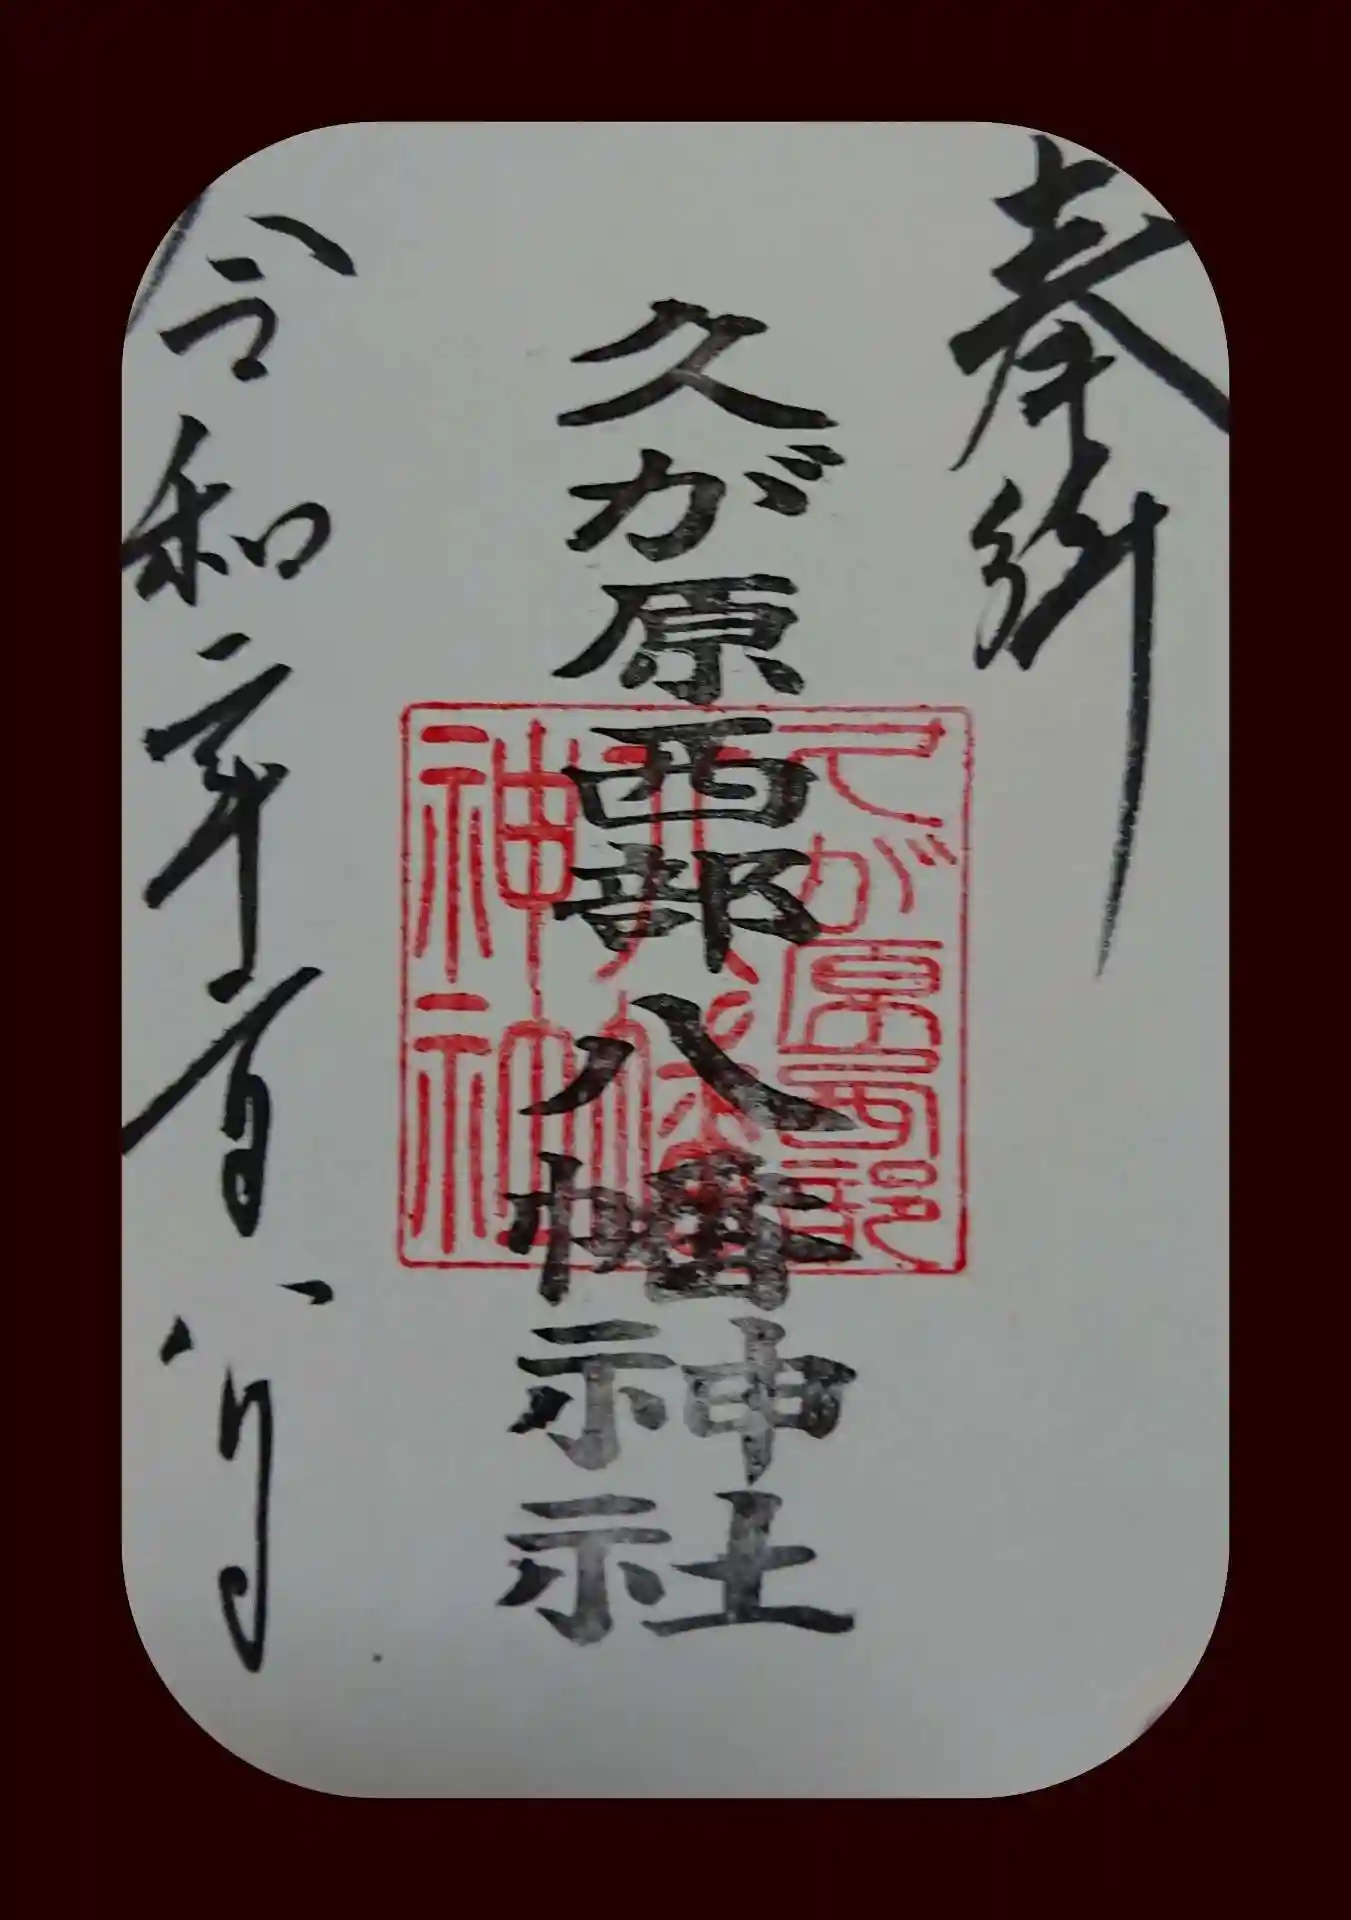 奉拝
久が原西部八幡神社
久が原西部
八幡
神社
令和年月八日